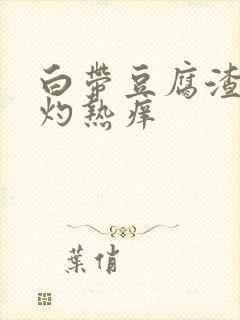 白带豆腐渣
灼热痒
葉俏